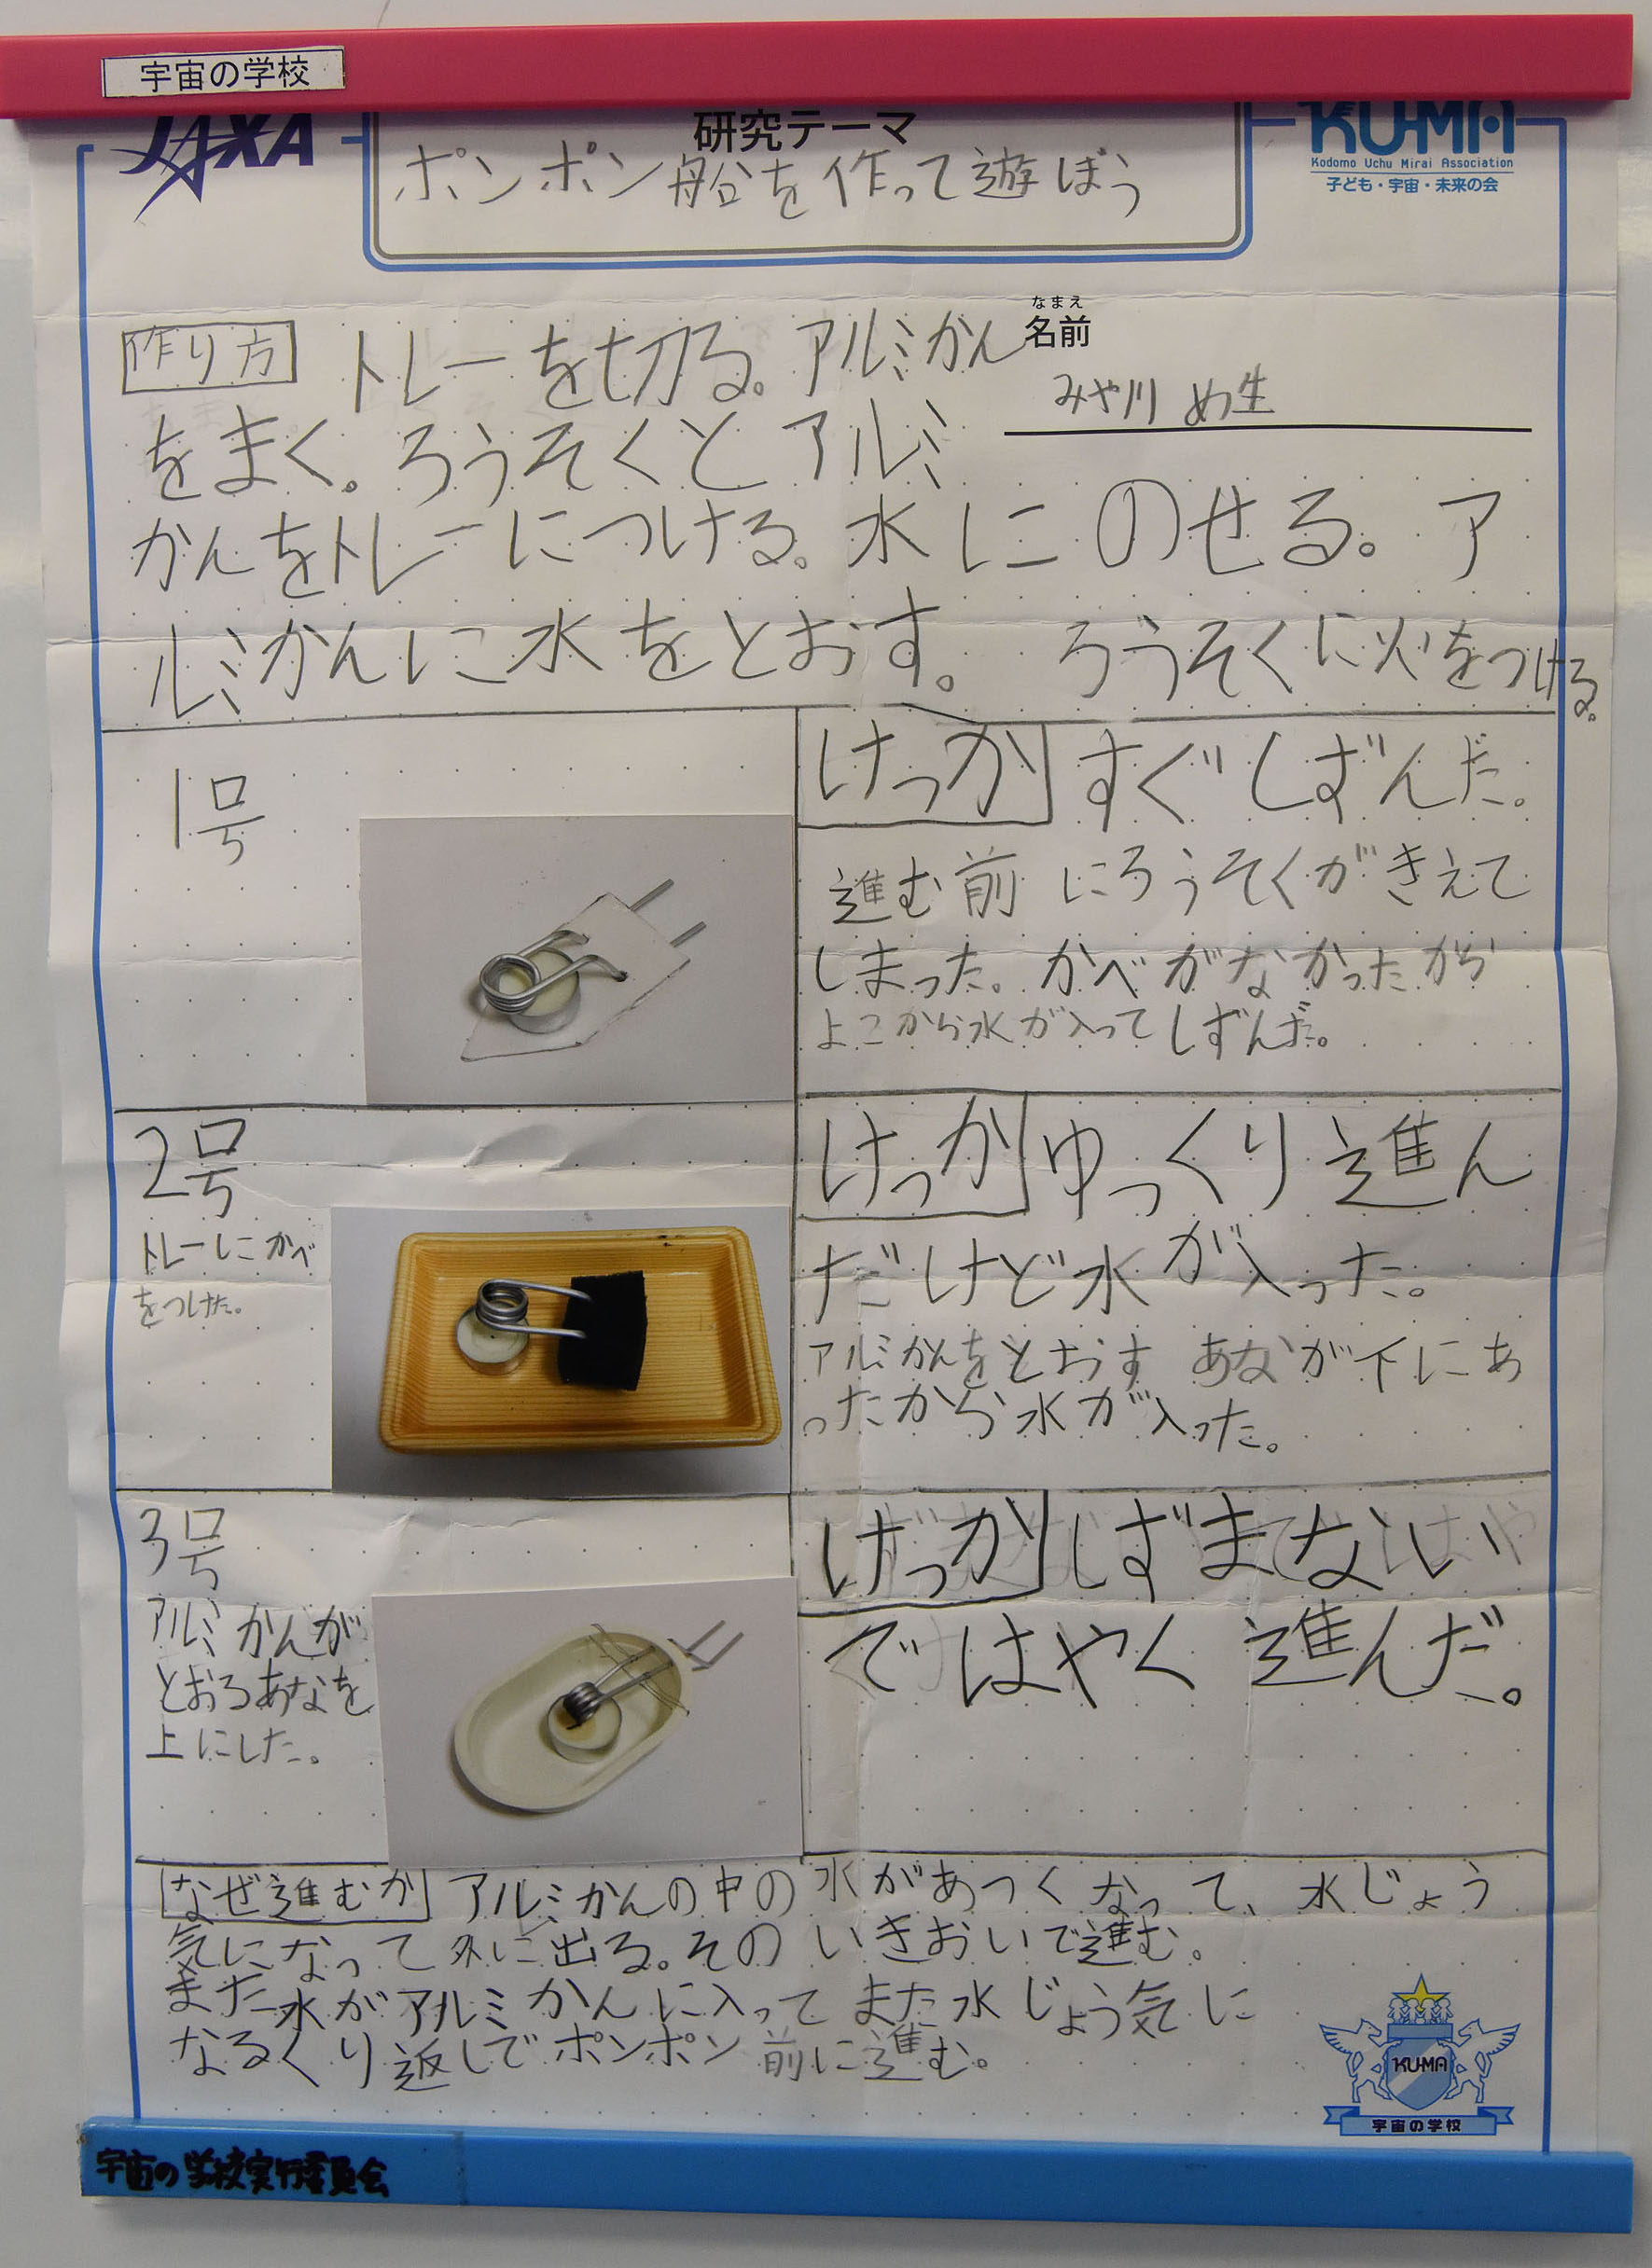 宇宙の学校
JAXA
研究テーマ
KU-MA
Kodomo Uchu Mirai Association
子ども・宇宙・未来の会
ポンポン船を作って遊ぼう
なまえ
名前
みや川 め生
作り方 トレーを切る。アルミかん
をまく。ろうそくとアルミ
かんをトレーにつける。水にのせる。ア
ルミかんに水をとおす。 ろうそくに火をつける。
1号
けっか すぐしずんだ。
進む前にろうそくがきえて
しまった。かべがなかったから
よこから水が入ってしずんだ。
2号
トレーにかべ
をつけた。
けっか ゆっくり進ん
だけど水が入った。
アルミかんをとおす あなが下にあ
ったから水が入った。
3号
アルミかんが
とおるあなを
上にした。
けっか しずまない
ではやく進んだ。
なぜ進むか アルミかんの中の水があつくなって、水じょう
気になって外に出る。そのいきおいで進む。
また水がアルミかんに入ってまた水じょう気に
なるくり返しでポンポン前に進む。
KU-MA
宇宙の学校
宇宙の学校実行委員会